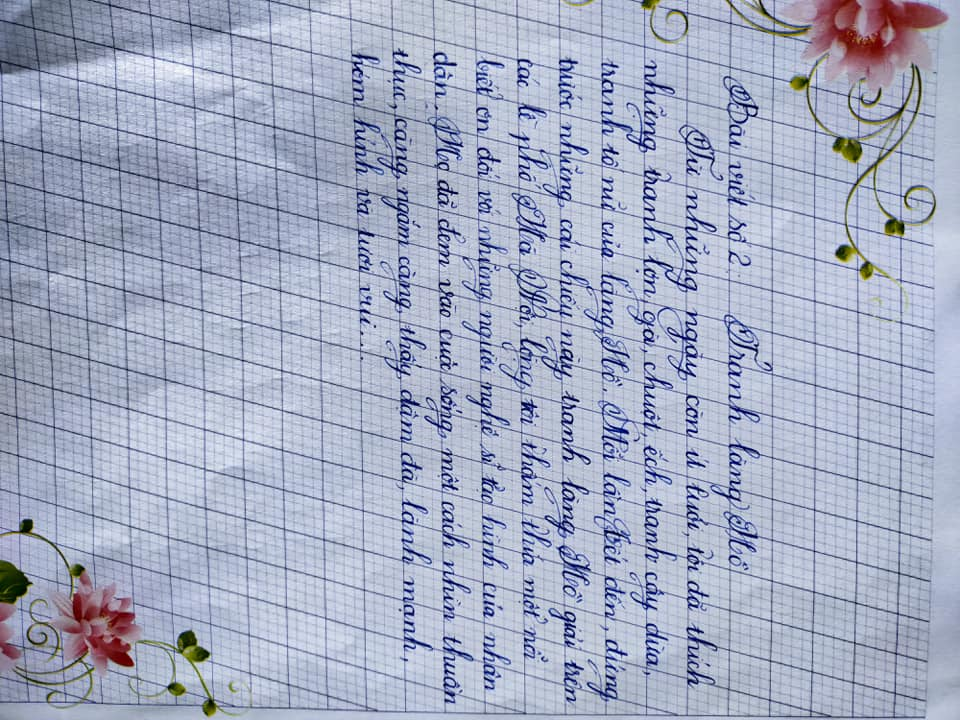 Bài viết số 2. Tranh làng Hồ
Từ những ngày còn ít tuổi, tôi đã thích
những tranh lợn, gà, chuột, ếch, tranh cây dừa,
tranh tố nữ của làng Hồ. Mỗi lần Tết đến, đứng
trước những cái chiếu này tranh làng Hồ giải trên
các lề phố Hà Nội, lòng tôi thấm thía một nỗi
biết ơn đối với những người nghệ sĩ tạo hình của nhân
dân. Họ đã đem vào cuộc sống một cách nhìn thuần
thục, càng ngắm càng thấy đậm đà, lành mạnh,
hóm hỉnh và tươi vui...